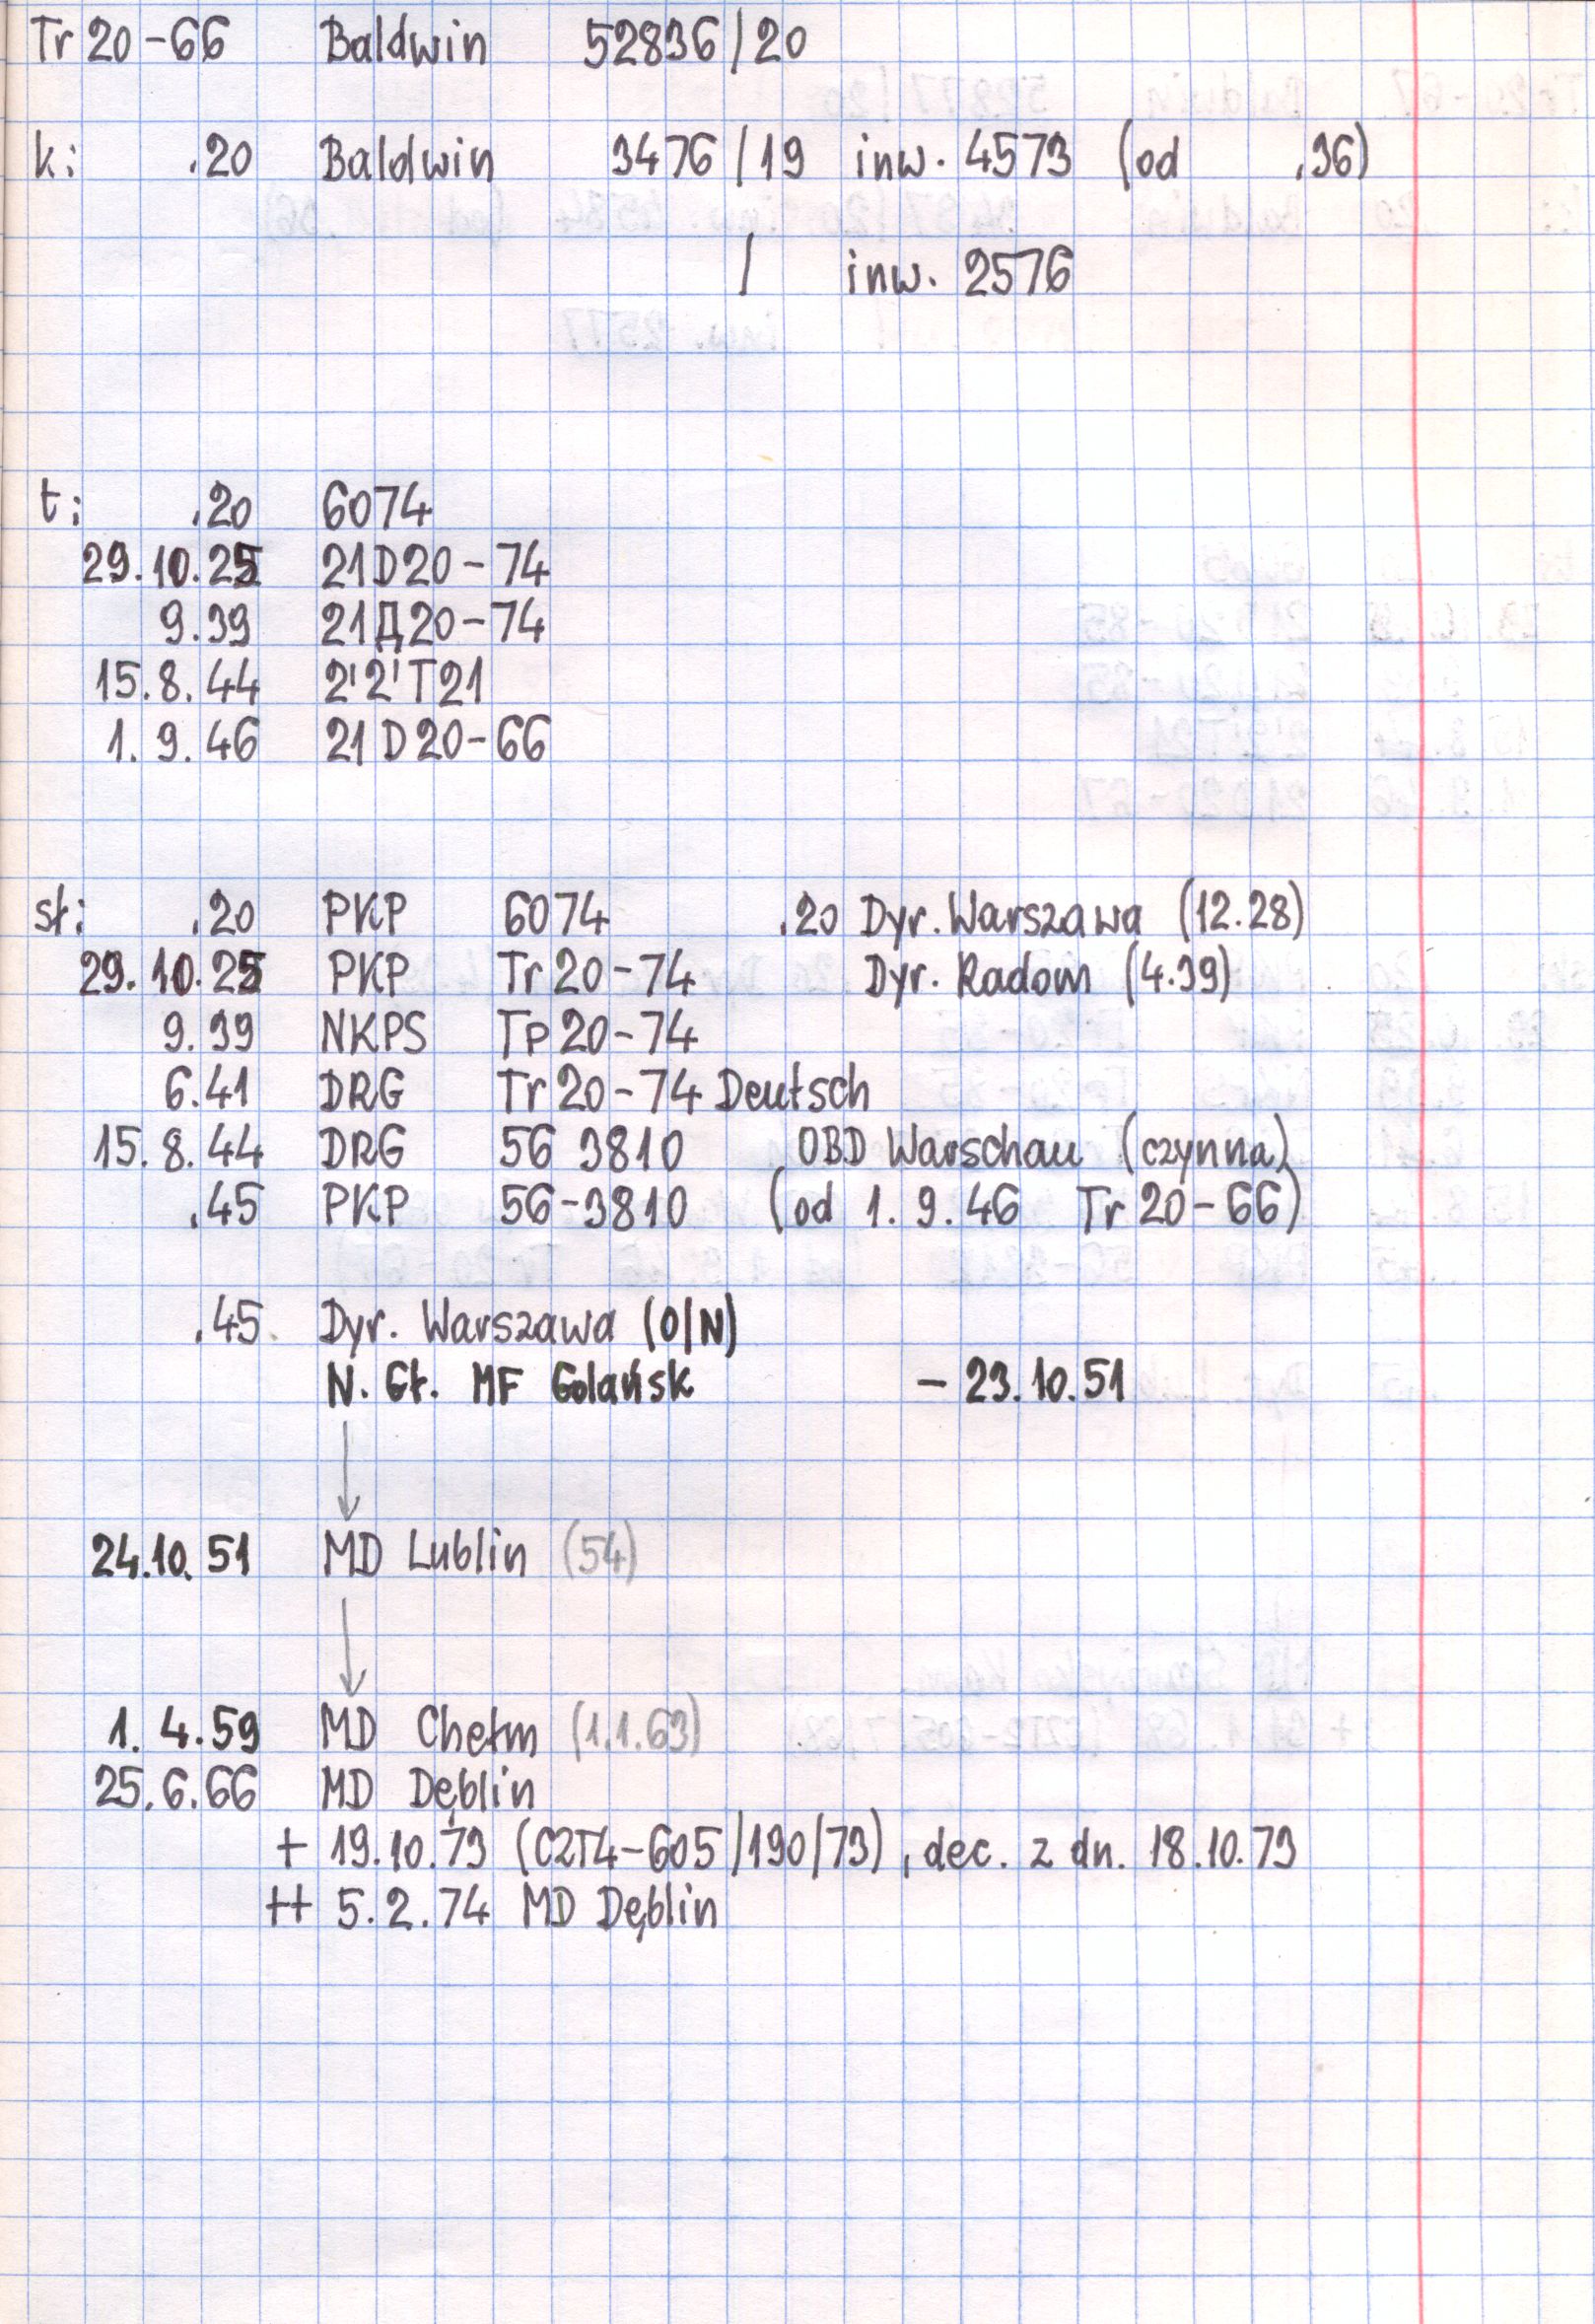 Tr 20-66 Baldwin 52836/20
k: .20 Baldwin 3476/19 inw. 4573 (od .36)
/ inw. 2576
t: .20 6074
29.10.25 21D20-74
9.39 21Д20-74
15.8.44 2'2'T21
1.9.46 21D20-66
sł: .20 PKP 6074 .20 Dyr. Warszawa (12.28)
29.10.25 PKP Tr 20-74 Dyr. Radom (4.39)
9.39 NKPS Тр 20-74
6.41 DRG Tr 20-74 Deutsch
15.8.44 DRG 56 3810 OBD Warschau (czynna)
.45 PKP 56-3810 (od 1.9.46 Tr 20-66)
.45 Dyr. Warszawa (O/N)
N. Gł. MF Gdańsk - 23.10.51
24.10.51 MD Lublin (54)
1.4.59 MD Chełm (1.1.63)
25.6.66 MD Dęblin
+ 19.10.73 (C2T4-605/190/73), dec. z dn. 18.10.73
++ 5.2.74 MD Dęblin